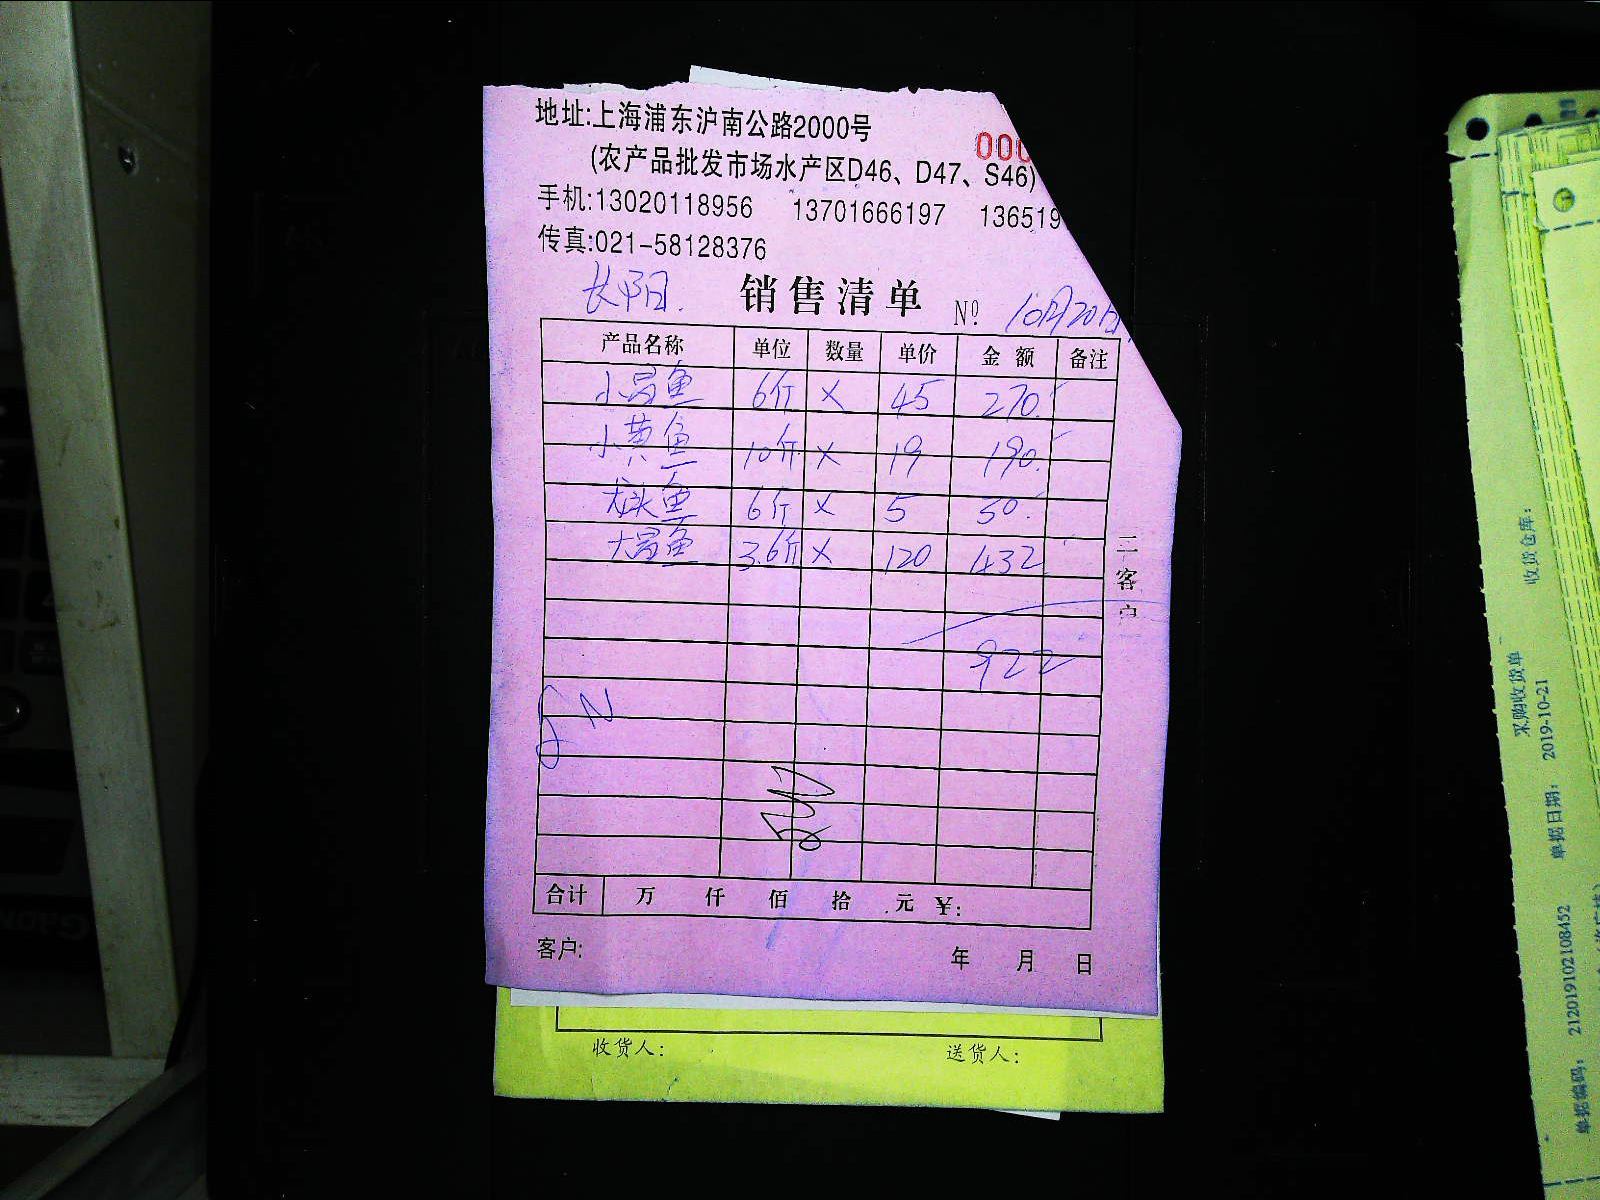 地址:上海浦东沪南公路2000号
000
(农产品批发市场水产区D46、D47、S46)
手机:13020118956 13701666197 136519
传真:021-58128376
长阳. 销售清单 Nº 10月20日
产品名称 单位 数量 单价 金额 备注
小昌鱼 6斤 × 45 270.
小黄鱼 10斤 × 19 190.
龙头鱼 6斤 × 5 50.
大昌鱼 3.6斤 × 120 432
922
合计 万 仟 佰 拾 元 ¥:
客户: 年 月 日
二客户
收货人: 送货人:
收货仓库:
采购收货单
单据日期: 2019-10-21
单据编码: 212019102108452